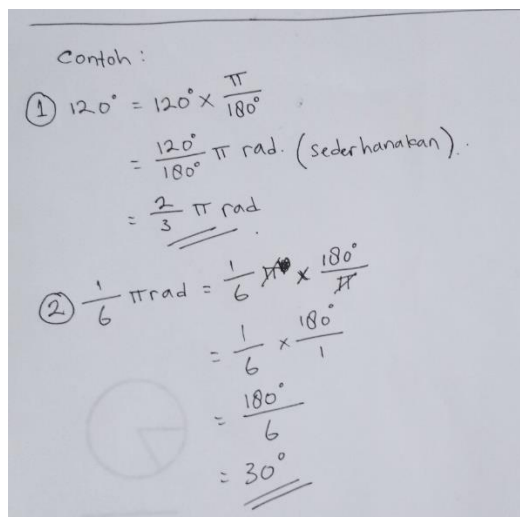 Contoh :
① 120° = 120° × π/180°
= 120°/180° π rad. (sederhanakan).
= 2/3 π rad.
② 1/6 π rad = 1/6 π × 180°/π
= 1/6 × 180°/1
= 180°/6
= 30°